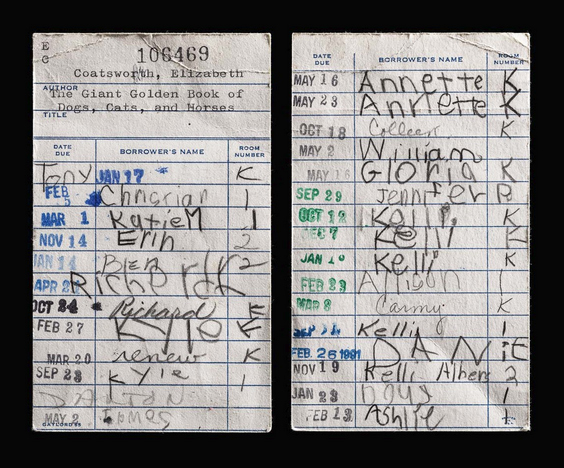 E
G
106469
Coatsworth, Elizabeth
AUTHOR
The Giant Golden Book of
Dogs, Cats, and Horses
TITLE
DATE DUE BORROWER'S NAME ROOM NUMBER
Tony JAN 17 K
FEB 5 Christian 1
MAR 1 Katie M 1
NOV 14 Erin 2
JAN 14 2
APR 2 Richard
OCT 24 Richard
FEB 27 Kylie K
MAR 20 renew K
SEP 23 Kylie 1
DALTON
MAY 2 James
GAYLORD
DATE DUE BORROWER'S NAME ROOM NUMBER
MAY 16 Annette K
MAY 23 Annette K
OCT 18 Colleen K
MAY 2 William
MAY 16 Gloria K
SEP 29 Jennifer
OCT 12 Kelli K
Kelli K
JAN Kelli K
FEB Alison 1
MAR 8 Carmy K
SEP Kelli 1
FEB. 26 1991 DANiE
NOV 19 Kelli 2
JAN 23 1
FEB 13 Ashlie